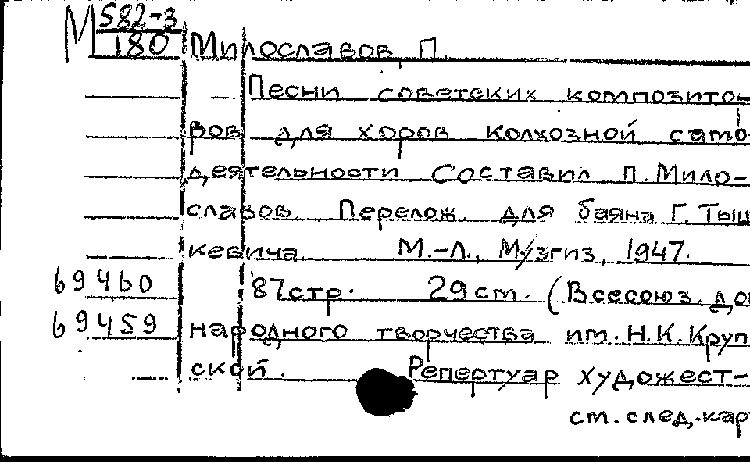 М 582-3
180 Милославов, П.
Песни советских композито-
ров для хоров колхозной само
деятельности Составил П. Мило-
славов. Перелож. для баяна Г. Тыш
кевича М.-Л., Музгиз, 1947.
69460 87стр. 29см. (Всесоюз. до
69459 народного творчества им. Н.К. Круп
ской. Репертуар художест-
см. след. кар